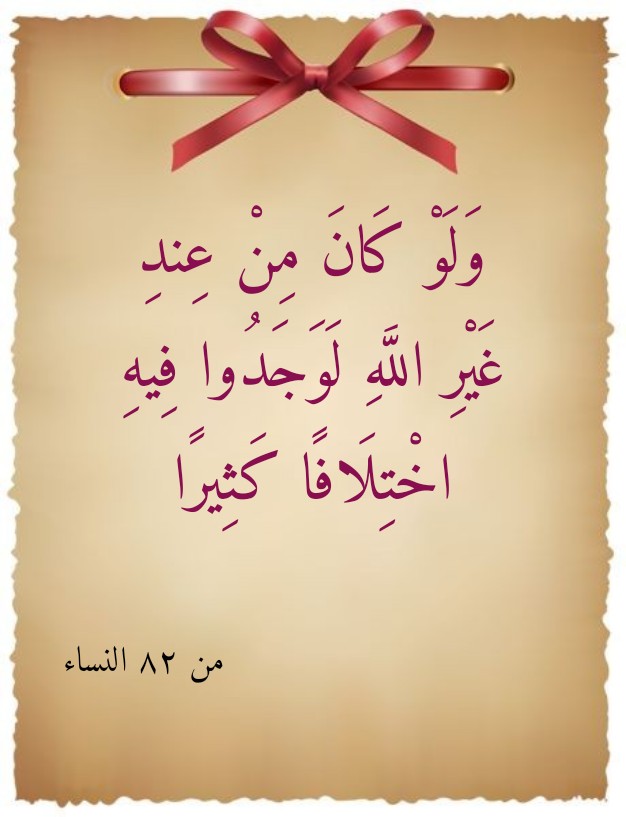 وَلَوْ كَانَ مِنْ عِندِ
غَيْرِ اللَّهِ لَوَجَدُوا فِيهِ
اخْتِلَافًا كَثِيرًا
من ٨٢ النساء